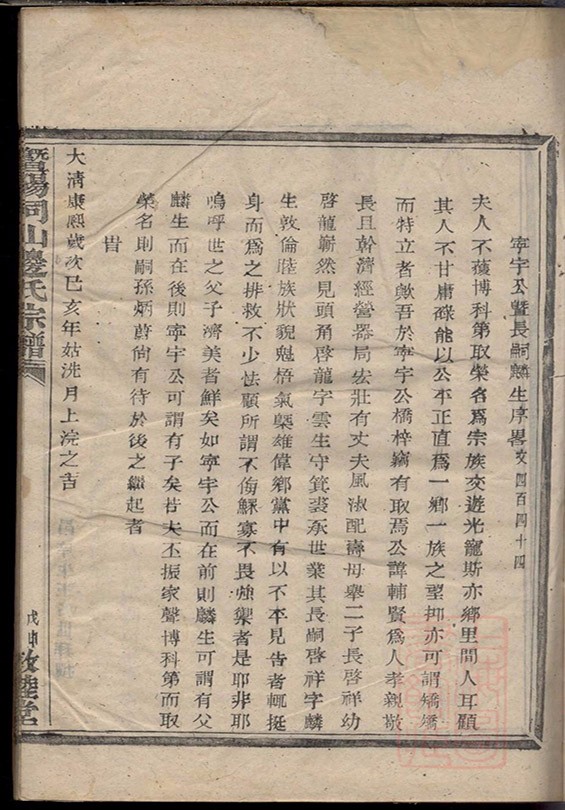 寧宇公暨長嗣麟生序畧文四百四十四
夫人不獲博科第取榮名為宗族交遊光寵斯亦鄉里間人耳顧
其人不甘庸碌能以公平正直為一鄉一族之望抑亦可謂矯矯
而特立者歟吾於寧宇公橋梓竊有取焉公諱輔賢為人孝親敬
長且幹濟經營器局宏壯有丈夫風淑配壽母舉二子長啓祥幼
啓龍嶄然見頭角啓龍字雲生守箕裘承世業其長嗣啓祥字麟
生敦倫睦族狀貌魁梧氣槩雄偉鄉黨中有以不平見告者輒挺
身而為之排救不少怯顧所謂不侮鰥寡不畏強禦者是耶非耶
嗚呼世之父子濟美者鮮矣如寧宇公而在前則麟生可謂有父
麟生而在後則寧宇公可謂有子矣若夫丕振家聲博科第而取
榮名則嗣孫炳蔚尚有待於後之繼起者
旹
大清康熙歲次己亥年姑洗月上浣之吉
暨陽同山邊氏宗譜
戊申敦睦堂